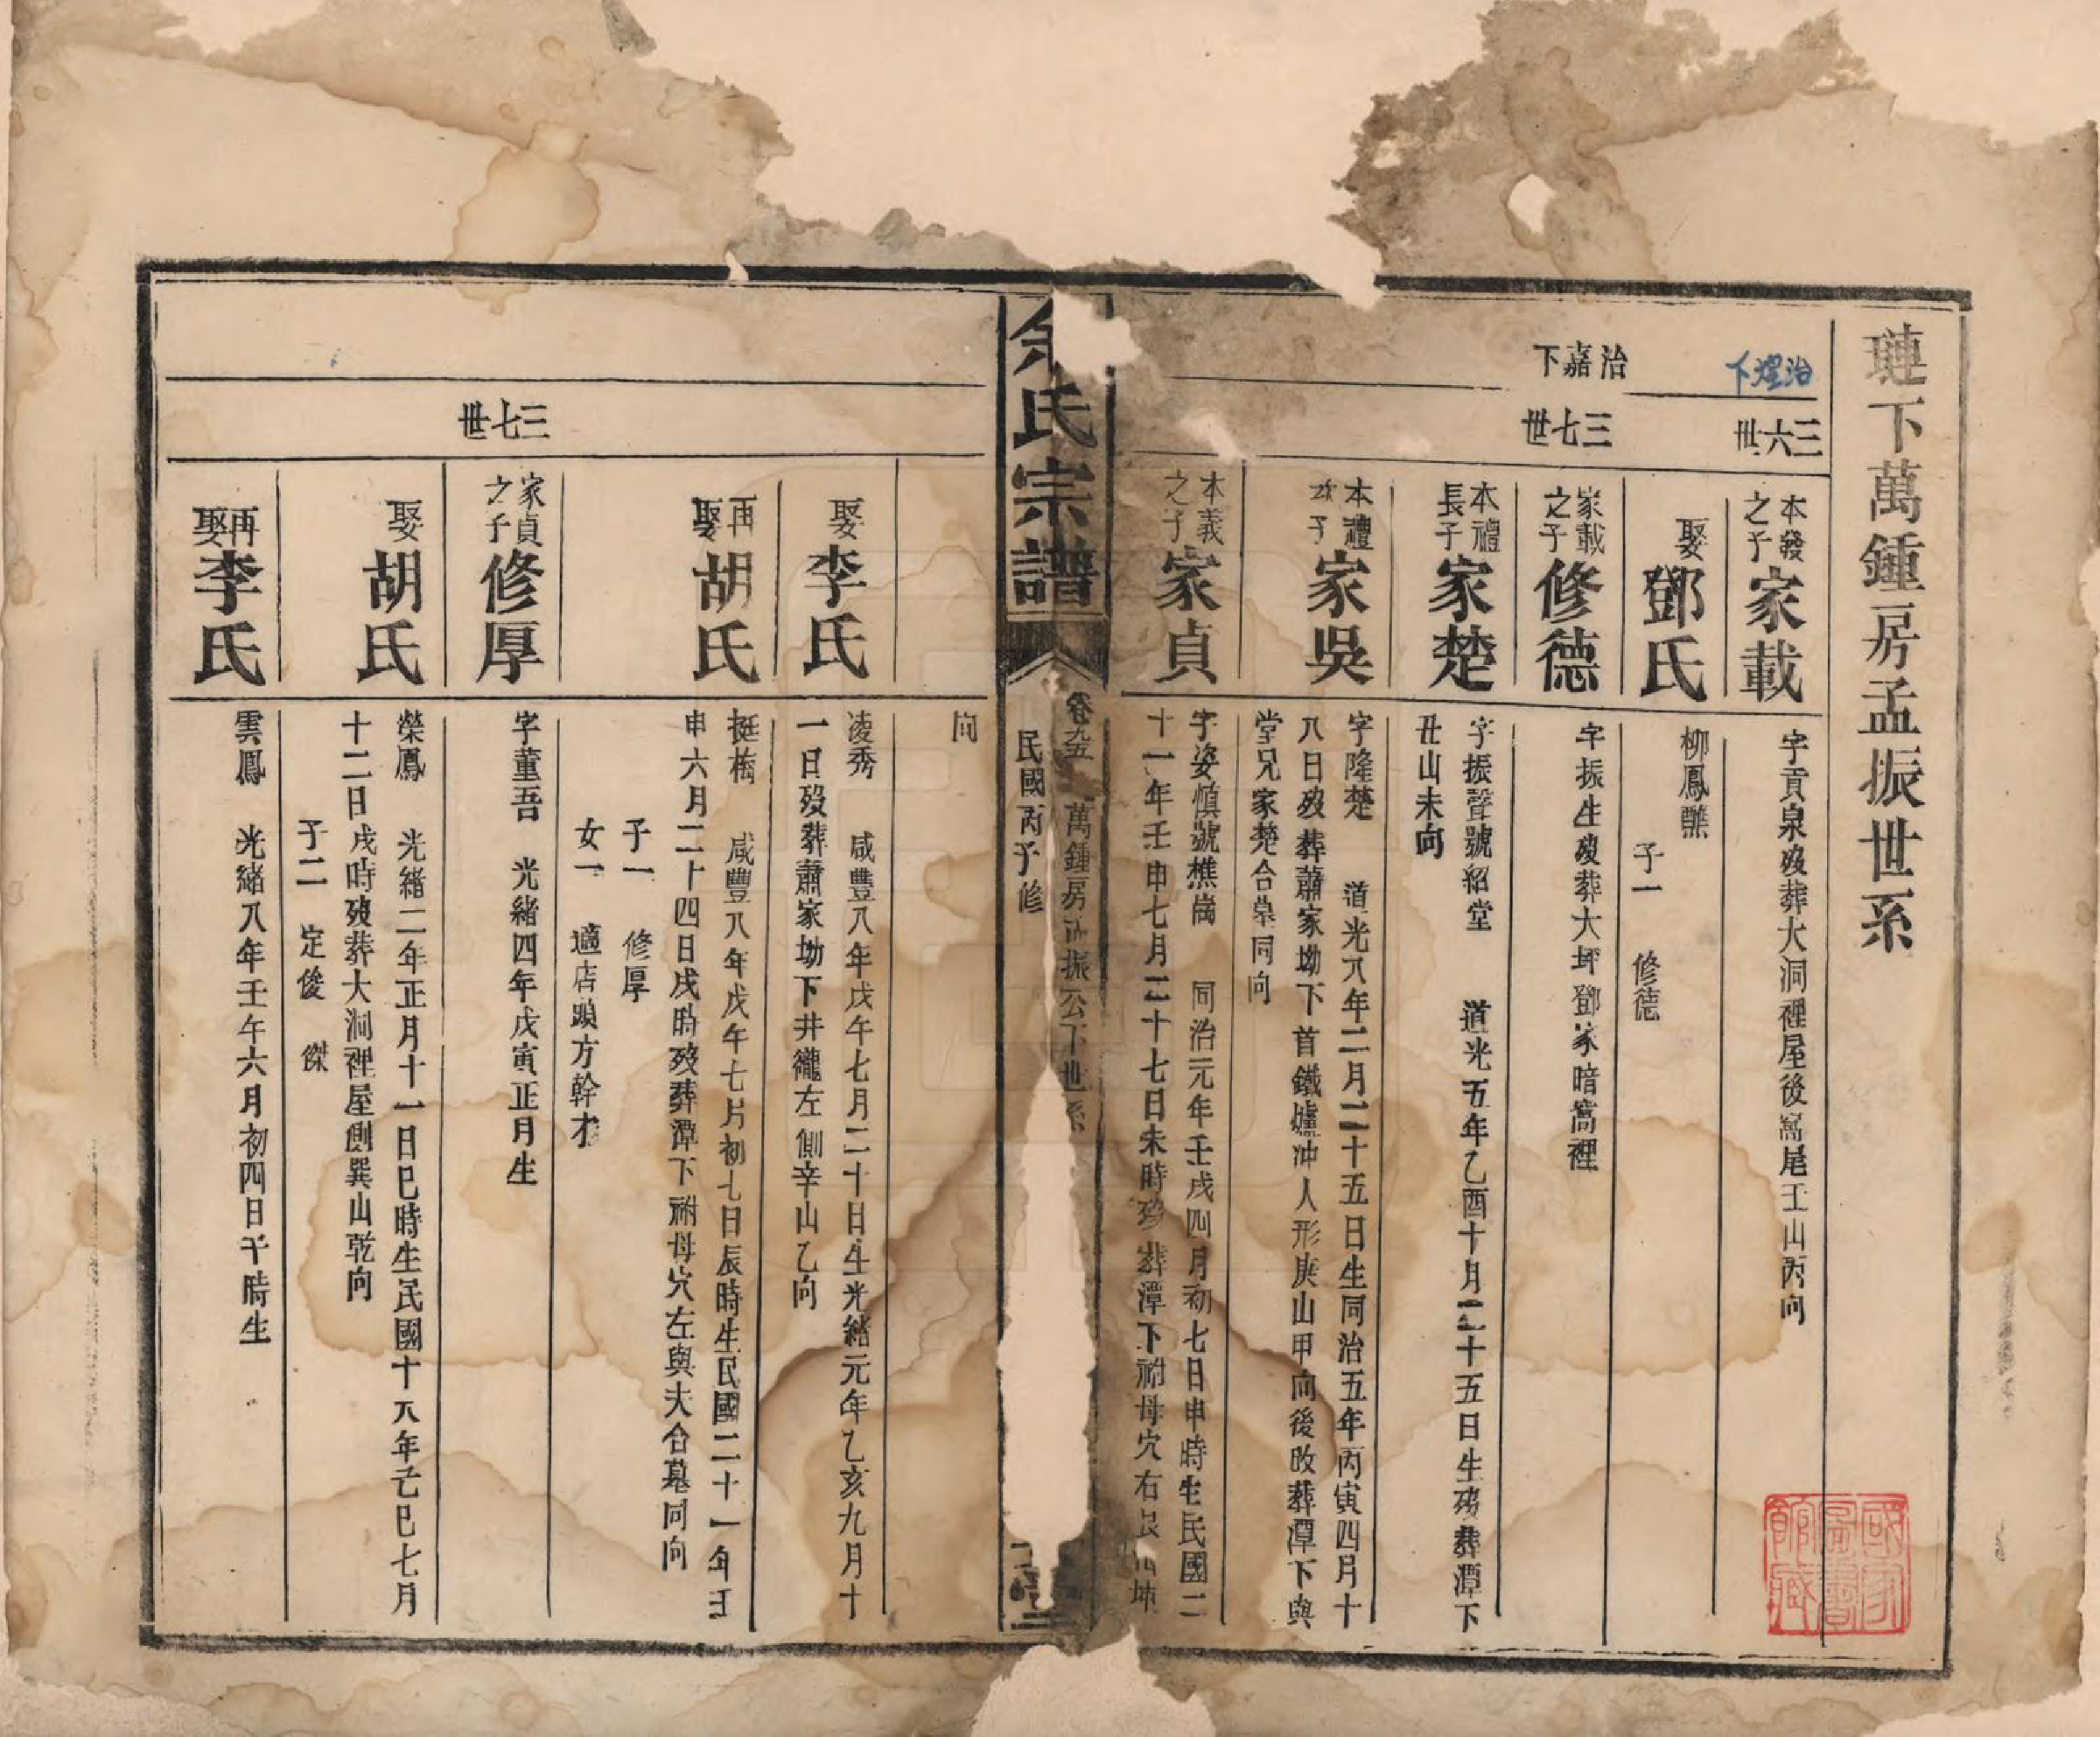 璉下萬鍾房孟振世系
治煌下
三六世
本發之子家載
字貢泉歿葬大洞裡屋後窩尾壬山丙向
娶鄧氏
柳鳳雛
子一 修德
治嘉下
三七世
家載之子修德
字振生歿葬大坪鄧家暗窩裡
本禮長子家楚
字振聲號紹堂 道光五年乙酉十月二十五日生歿葬潭下
丑山未向
本禮次子家吳
字隆楚 道光八年二月二十五日生同治五年丙寅四月十
八日歿葬蕭家坳下首鐵爐冲人形庚山甲向後改葬潭下與
堂兄家楚合墓同向
本義之子家貞
字姿慎號樵崗 同治元年壬戌四月初七日申時生民國二
十一年壬申七月二十七日未時歿葬潭下祔母穴右艮山坤
余氏宗譜
卷九五 萬鍾房孟振公下世系
民國丙子修
堂
向
三七世
娶李氏
凌秀 咸豐八年戊午七月二十日生光緒元年乙亥九月十
一日歿葬蕭家坳下井襱左側辛山乙向
再娶胡氏
挺梅 咸豐八年戊午七月初七日辰時生民國二十一年壬
申六月二十四日戌時歿葬潭下祔母穴左與夫合墓同向
子一 修厚
女一 適店頭方幹才
家貞之子修厚
字董吾 光緒四年戊寅正月生
娶胡氏
榮鳳 光緒二年正月十一日巳時生民國十八年己巳七月
十二日戌時歿葬大洞裡屋側巽山乾向
子二 定俊 傑
再娶李氏
雲鳳 光緒八年壬午六月初四日午時生
國家圖書館藏